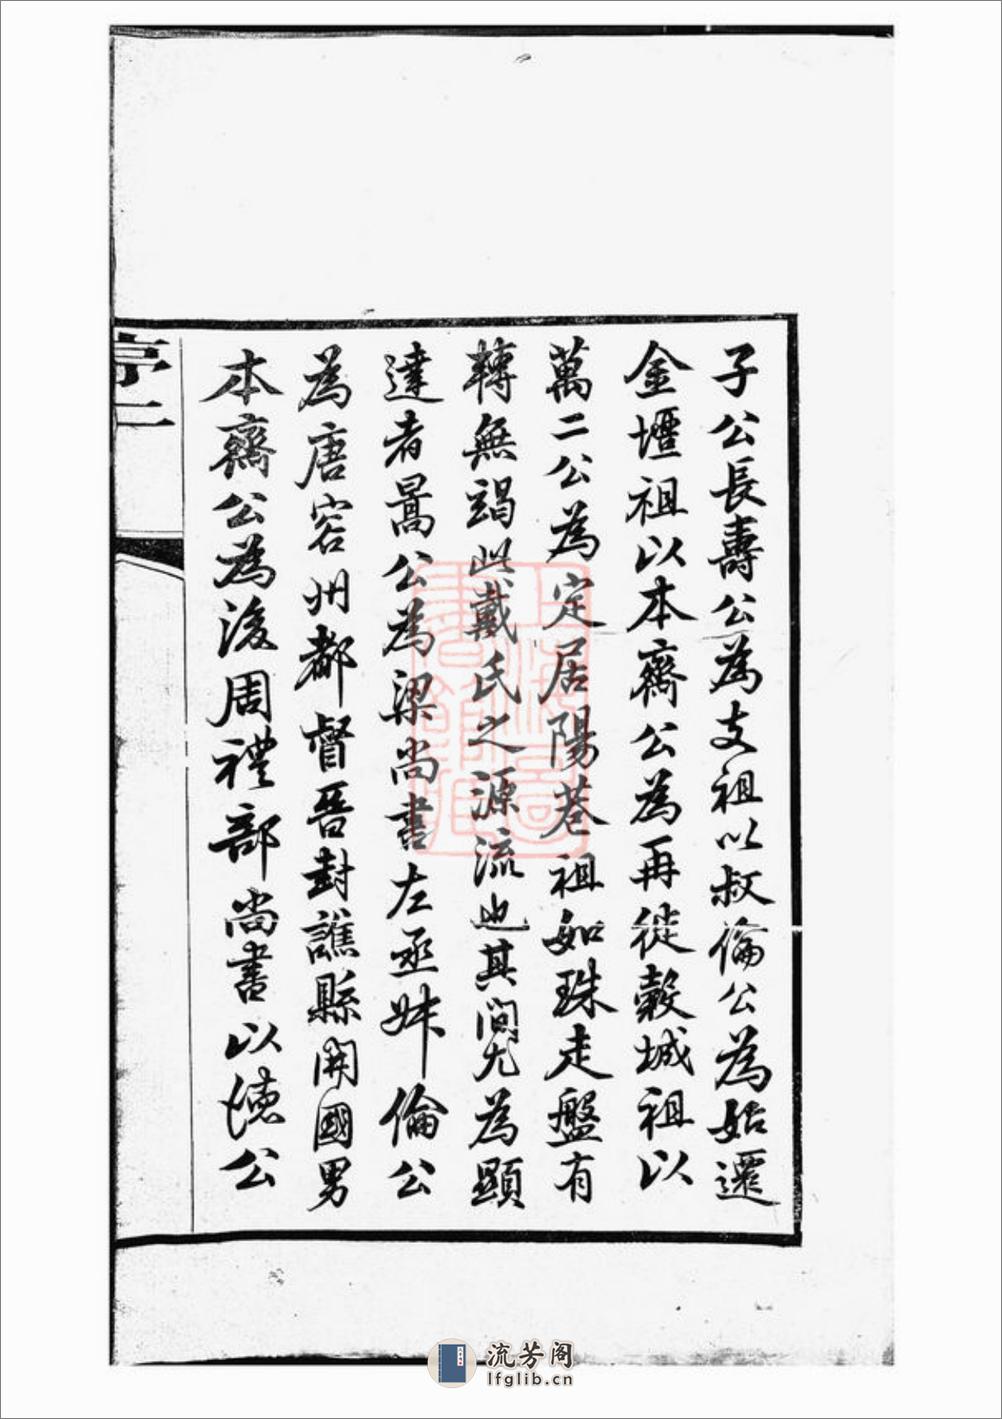 子公長壽公為支祖以叔倫公為始遷
金壇祖以本齋公為再徙穀城祖以
萬二公為定居陽巷祖如珠走盤有
轉無竭此戴氏之源流也其間尤為顯
達者暠公為梁尚書左丞姝倫公
為唐容州都督晉封譙縣開國男
本齋公為後周禮部尚書以德公
序二
上海圖書館藏
流芳阁
lfglib.cn